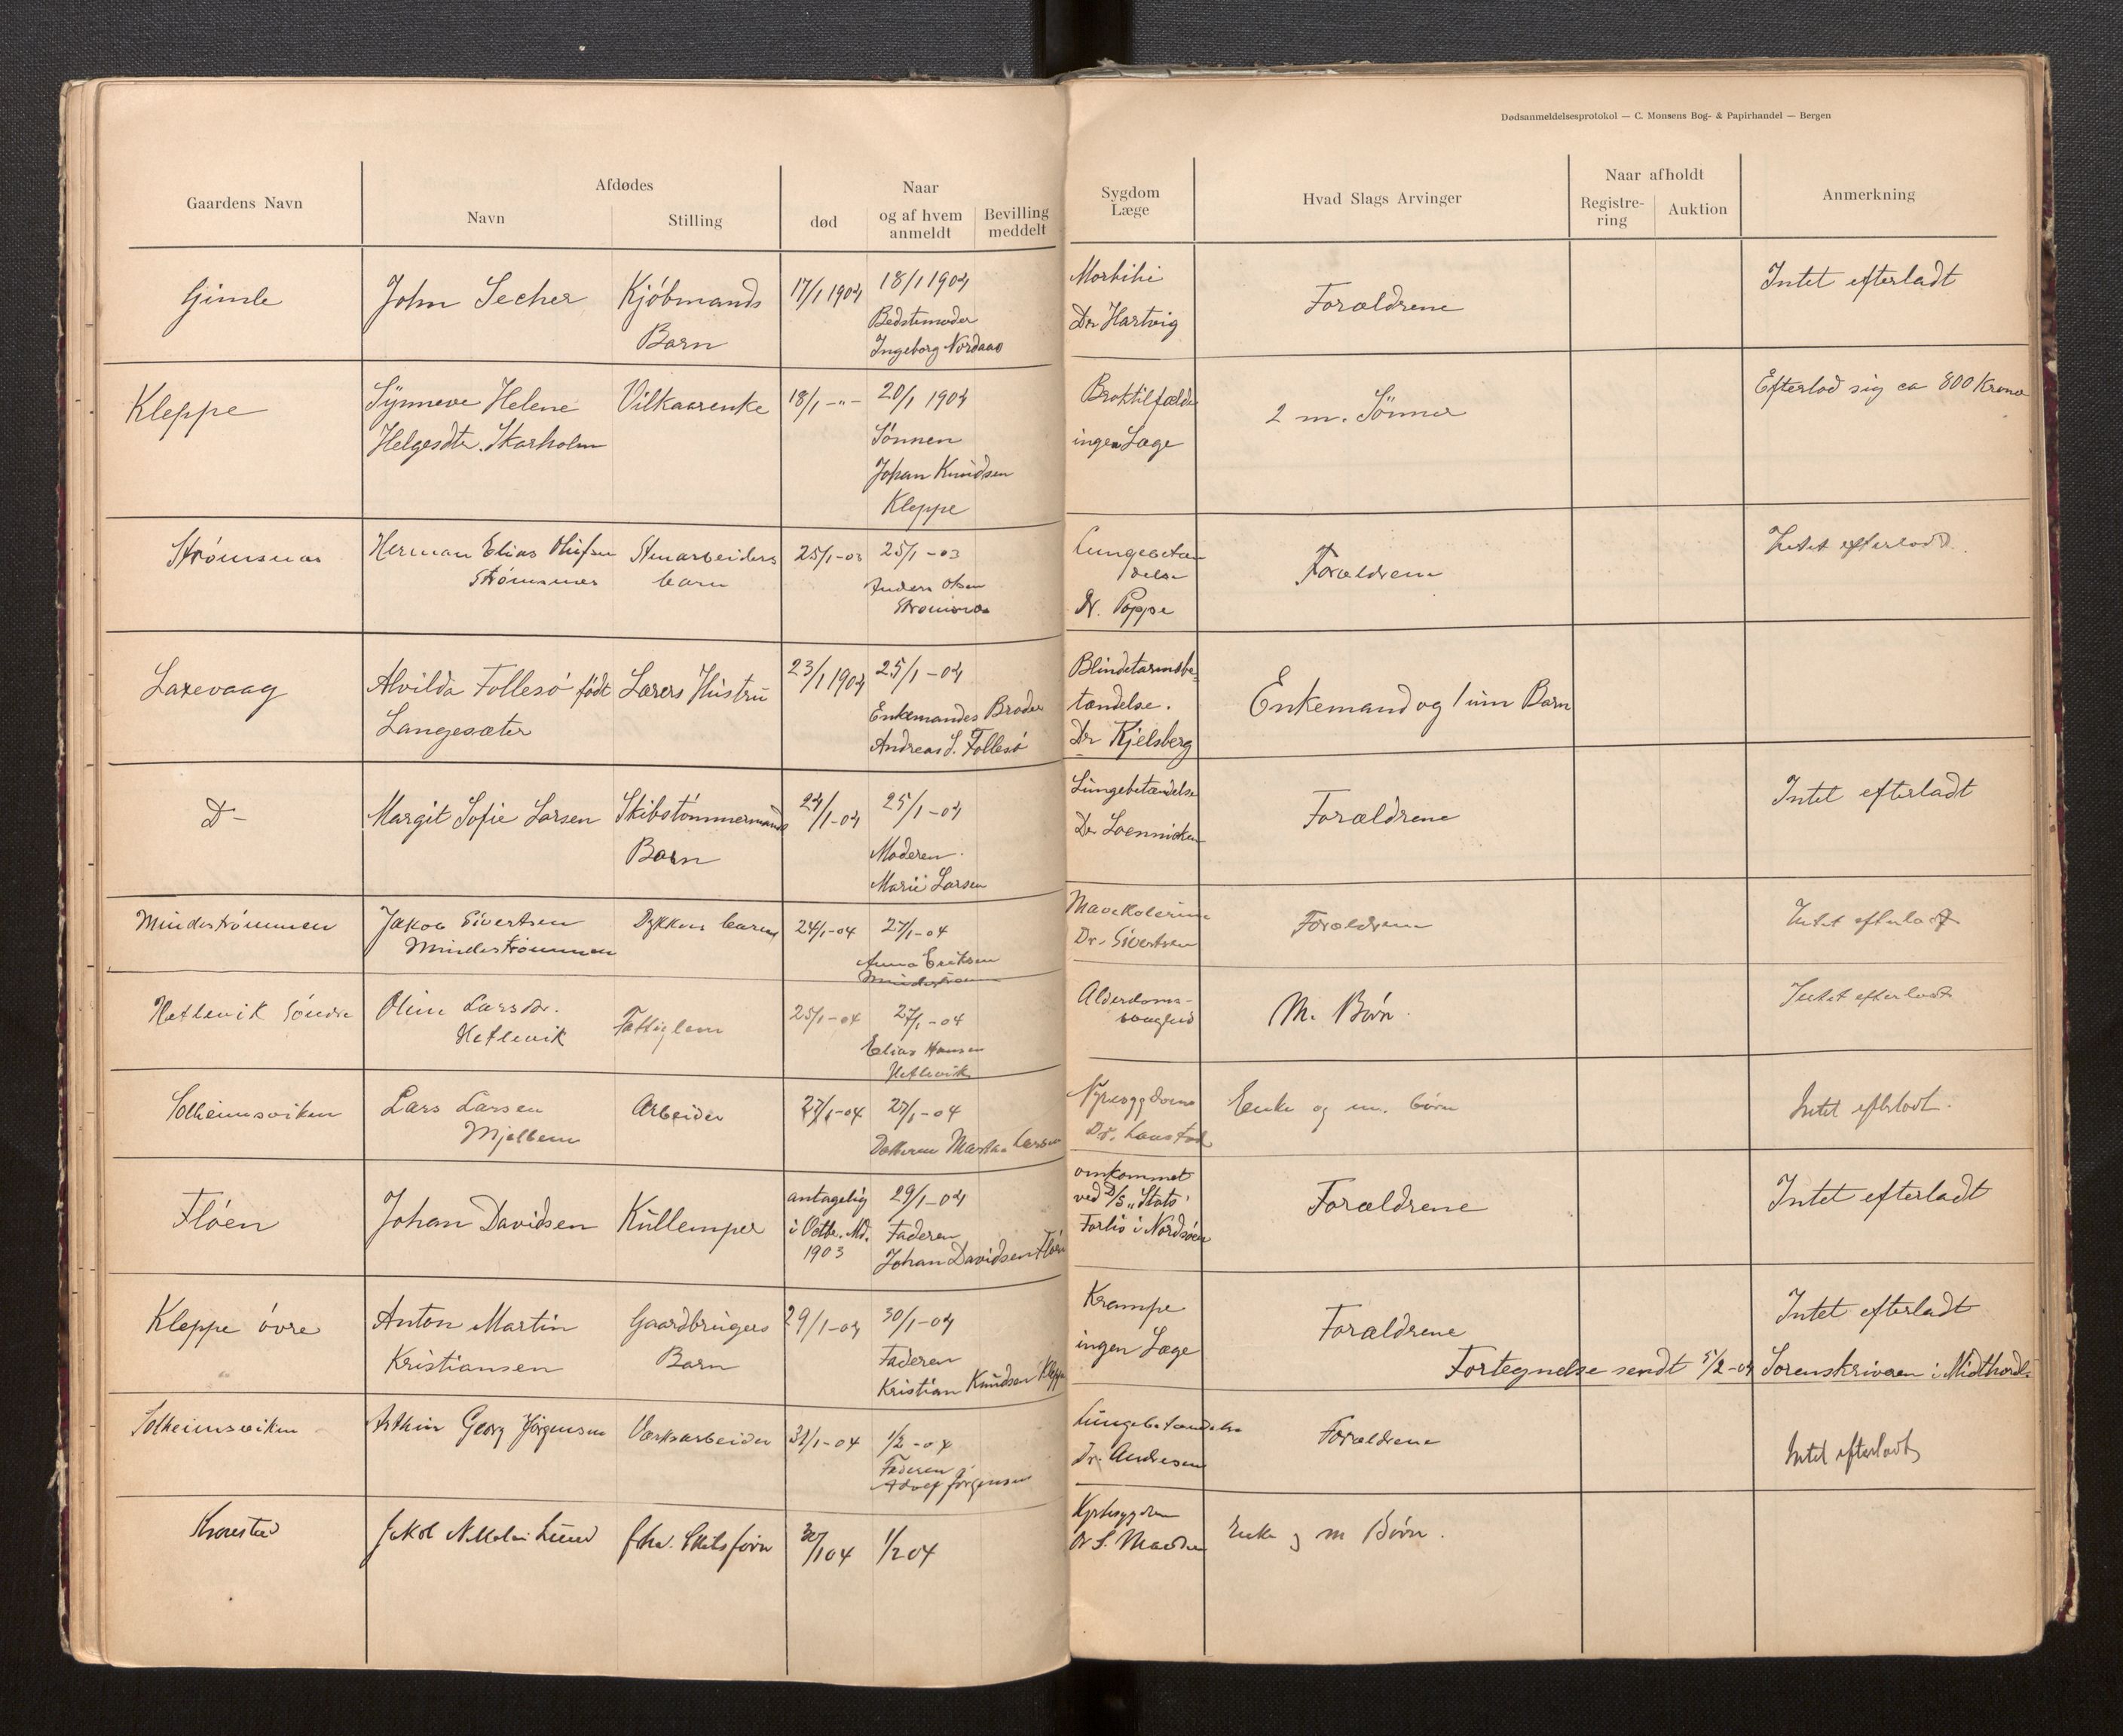 Dødsanmeldelsesprotokol — C. Monsens Bog- & Papirhandel — Bergen
Gaardens Navn
Afdødes
Navn
Stilling
Naar
død
og af hvem
anmeldt
Bevilling
meddelt
Sygdom
Læge
Hvad Slags Arvinger
Naar afholdt
Registre-
ring
Auktion
Anmerkning
Gimle
John Secher
Kjøbmands
Barn
17/1 1904
18/1 1904
Bedstemoder
Ingeborg Nordaas
Dr Hartvig
Forældrene
Intet efterladt
Kleppe
Synneve Helene
Helgesdtr. Skarholm
Vilkaarenke
18/1 -"-
20/1 1904
Sønnen
Johan Knudsen
Kleppe
Broktilfælde
ingen Læge
2 m. Sønner
Efterlod sig ca 800 Kroner
Strømsnes
Herman Elias Olufsen
Strømsnes
Stenarbeiders
barn
25/1-03
25/1-03
Anders Olsen
Strømsnes
Lungebetæn
delse
Dr. Poppe
Forældrene
Intet efterladt.
Laxevaag
Alvilda Follesø født
Langesæter
Lærers Hustru
23/1 1904
25/1-04
Enkemandes Broder
Andreas S. Follesø
Blindetarmsbe-
tændelse.
Dr Kjelsberg
Enkemand og 1 um Barn
D-
Margit Sofie Larsen
Skibstømmermands
Barn
24/1-04
25/1-04
Moderen.
Marie Larsen
Lungebetændelse
Dr
Forældrene
Intet efterladt
Mindestrømmen
Jakob Sivertsen
Mindestrømmen
Dykkers barn
24/1-04
27/1-04
Anna Eriksen
Dr. Sivertsen
Forældrene
Intet efterladt
Hetlevik Søndre
Oline Larsdtr.
Hetlevik
Fattiglem
25/1-04
27/1-04
Elias Hansen
Hetlevik
Alderdoms-
svaghed
M. Børn.
Intet efterladt
Solheimsviken
Lars Larsen
Mjelbem
Arbeider
27/1-04
27/1-04
Datteren Martha Larsen
Nyresygdom
Dr.
Enke og m. børn
Intet efterladt.
Fløen
Johan Davidsen
Kullemper
antagelig
i Octbr. Md.
1903
29/1-04
Faderen
Johan Davidsen Fløen
omkommet
ved D/S "Stats"
Forlis i Nordsøen
Forældrene
Intet efterladt
Kleppe øvre
Anton Martin
Kristiansen
Gaardbrugers
Barn
29/1-04
30/1-04
Faderen
Kristian Knudsen Kleppe
Krampe
ingen Læge
Forældrene
Intet efterladt
Fortegnelse sendt 5/2-04 Sorenskriveren i Midthordl.
Solheimsviken
Arthur Georg Jørgensen
Værksarbeider
31/1-04
1/2-04
Faderen
Adolf Jørgensen
Lungebetændelse
Dr. Andresen
Forældrene
Intet efterladt
Kronstad
Jakob Nikolai Lund
fhv. Skibsfører
30/1 04
1/2 04
Dr S.
Enke og m Børn.